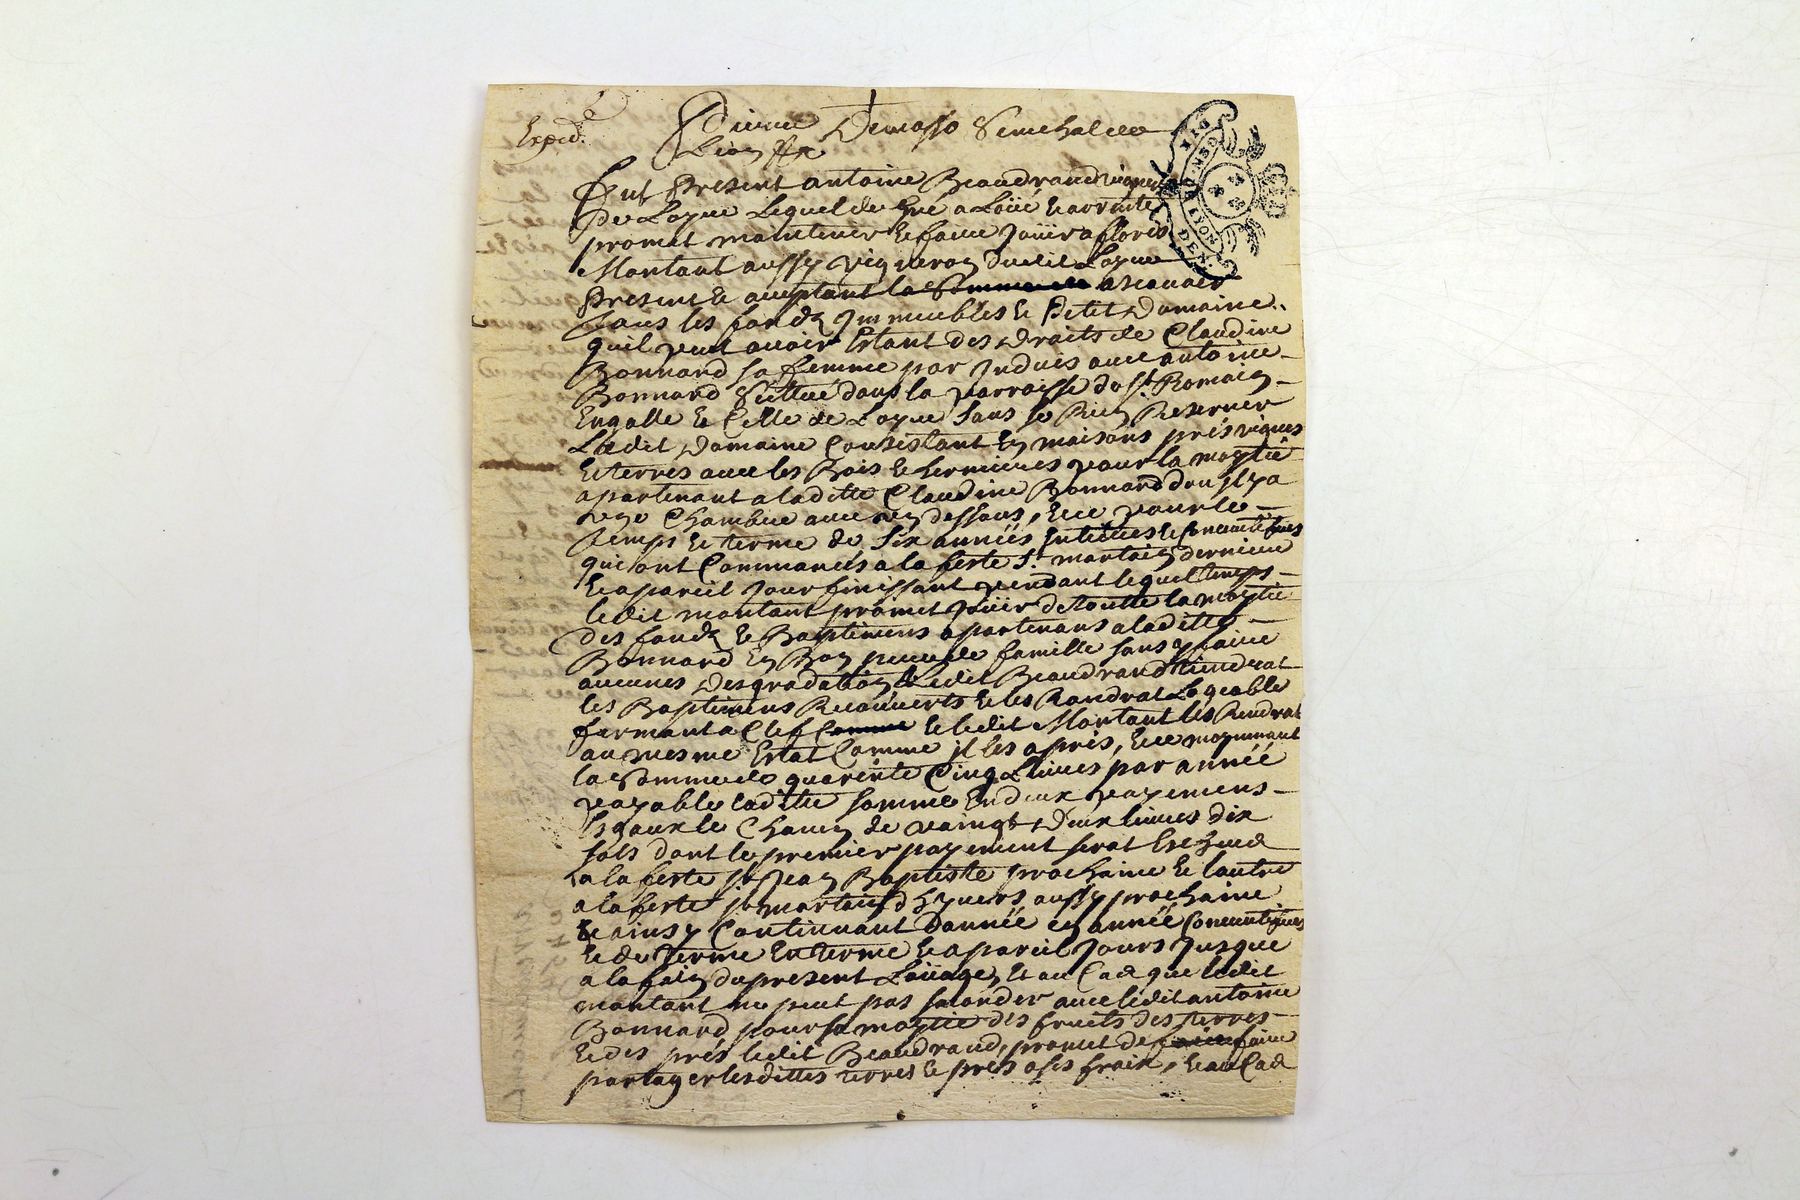 Exped.
Pierre Demasso Senechal de
Lion &c
Fut Present antoine Beaudrand vigneron
de Loyre Lequel de gré a Loüé et arrente
promet maintenir et faire Joüir a floris
Montant aussy vigneron dudit Loyre
Present et acceptant la somme de ascavoir
tous les fondz Immeubles et Petit Domaine
quil peut avoir Estant des droits de Claudine
Bonnard sa femme par Induis avec antoine
Bonnard Scittué dans la parroisse de St. Romain
Engalle et Celle de Loyre sans se Rien Reserver
Ledit Domaine Consistant En maisons prés vignes
Et terres avec les Bois et hermieres pour la moytié
apartenant a laditte Claudine Bonnard dou Il y a
une Chambre avec un dessous, Et ce pour le
temps et terme de Six années Entieres et Consecutifves
qui ont Commancés a la feste St. martain derniere
Et a pareil Jour finissant pendant lequel temps
ledit montant promet Joüir de Toutte la moytié
des fondz et Baptimens apartenans a laditte
Bonnard En Bon pere de famille sans y faire
aucunes Desgradation Ledit Beaudrand tiendrat
les Baptimens Recouverts et les Randrat Logeable
fermant a Clef Comme et ledit Montant les Rendrat
au mesme Estat Comme il les apris, Et ce moyennant
la Somme de quarente Cinq Livres par année
payable laditte somme En deux payemens
Esgaux le Chacun de vaingt Deux livres dix
sols dont le premier payement serat Escheud
a la feste St. Jean Baptiste prochaine et lautre
a la feste St. martain dhyvers aussy prochaine
Et ainsy Continuant Dannée en année Consecutifves
Et de Terme En terme et a pareil Jours Jusque
a la fain du present Loüage, Et au Cas que ledit
montant ne peut pas sacorder avec ledit antoine
Bonnard pour sa moytié des fruits des terres
Et des prés ledit Beaudrand, promet de faire
partager lesdittes terres et prés a ses frais, Et au Cas